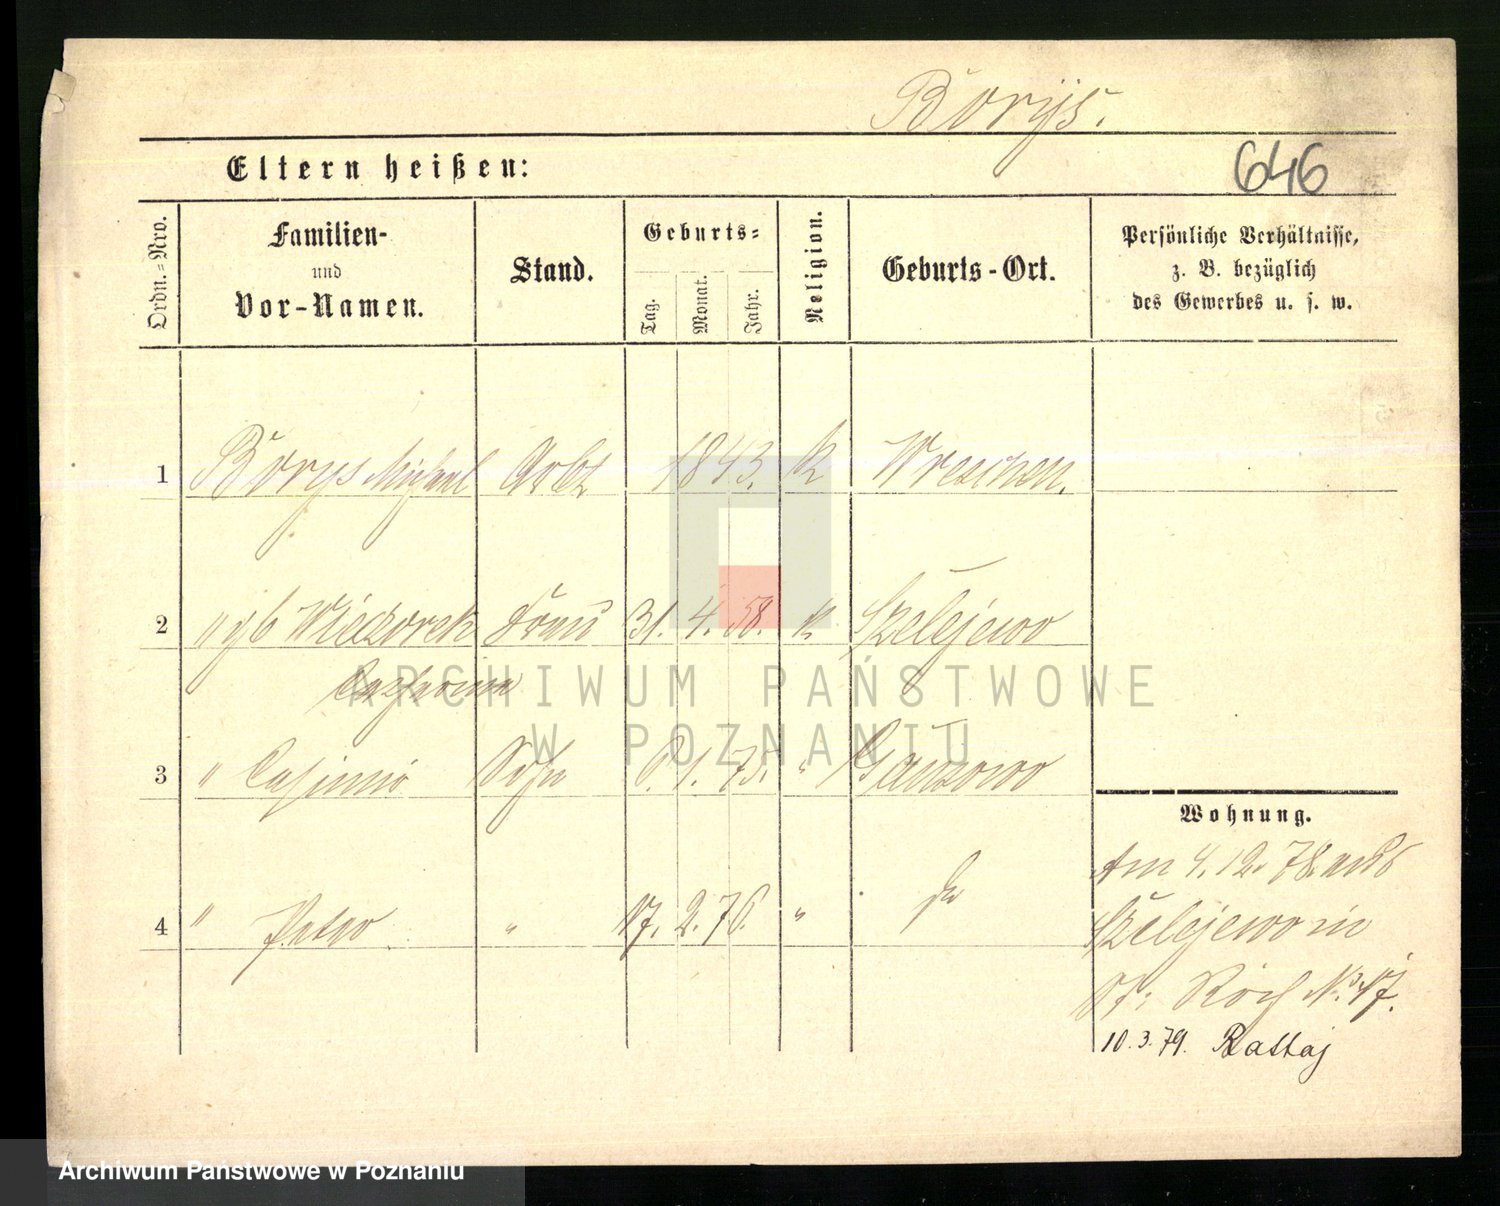 Borys.
646
Eltern heißen:
Ordn.-Nro.
Familien-
und
Vor-Namen.
Stand.
Geburts-
Tag.
Monat.
Jahr.
Religion.
Geburts-Ort.
Persönliche Verhältnisse,
z. B. bezüglich
des Gewerbes u. s. w.
1 Borys Michael Arbt 1843. K Wreschen.
2 " gb Wieczorek Frau 31. 4. 58. K. Szelejewo
Catharina
3 " Casimir Sohn 1. 75. "
4 " Peter " 17. 2. 76. " do
Wohnung.
Am 4.12.78. aus
Szelejewo in
St: Roch No. 17.
10.3.79. Rattaj
ARCHIWUM PAŃSTWOWE
W POZNANIU
Archiwum Państwowe w Poznaniu